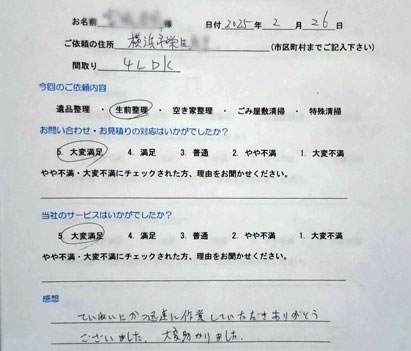 お名前 様 日付 2025 年 2 月 26 日
ご依頼の住所 横浜市栄区 (市区町村までご記入下さい)
間取り 4LDK
今回のご依頼内容
遺品整理 ・ 生前整理 ・ 空き家整理 ・ ごみ屋敷清掃 ・ 特殊清掃
お問い合わせ・お見積りの対応はいかがでしたか?
5. 大変満足 4. 満足 3. 普通 2. やや不満 1. 大変不満
やや不満・大変不満にチェックされた方、理由をお聞かせください。
当社のサービスはいかがでしたか?
5. 大変満足 4. 満足 3. 普通 2. やや不満 1. 大変不満
やや不満・大変不満にチェックされた方、理由をお聞かせください。
感想
ていねいにかつ迅速に作業していただきありがとう
ございました。大変助かりました。